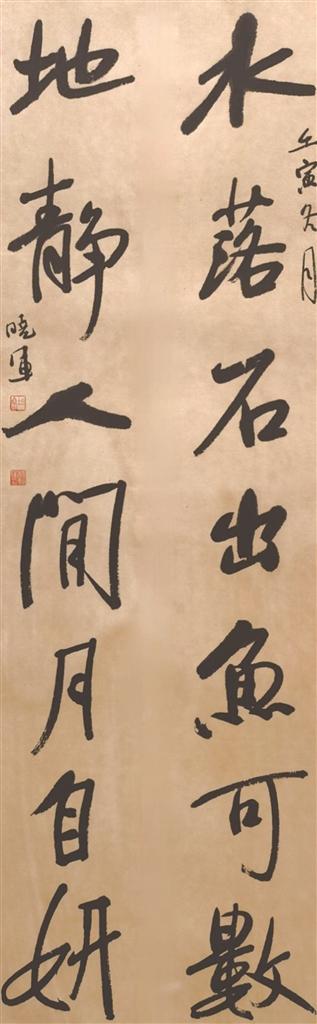 壬寅冬月
水落石出魚可數
地静人間月自妍
曉軍